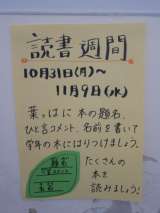 読書週間
10月31日(月)〜
11月9日(水)
葉っぱに本の題名、
ひと言コメント、名前を書いて
学年の木にはりつけましょう。
題名
名前
たくさんの
本を
読みましょう!